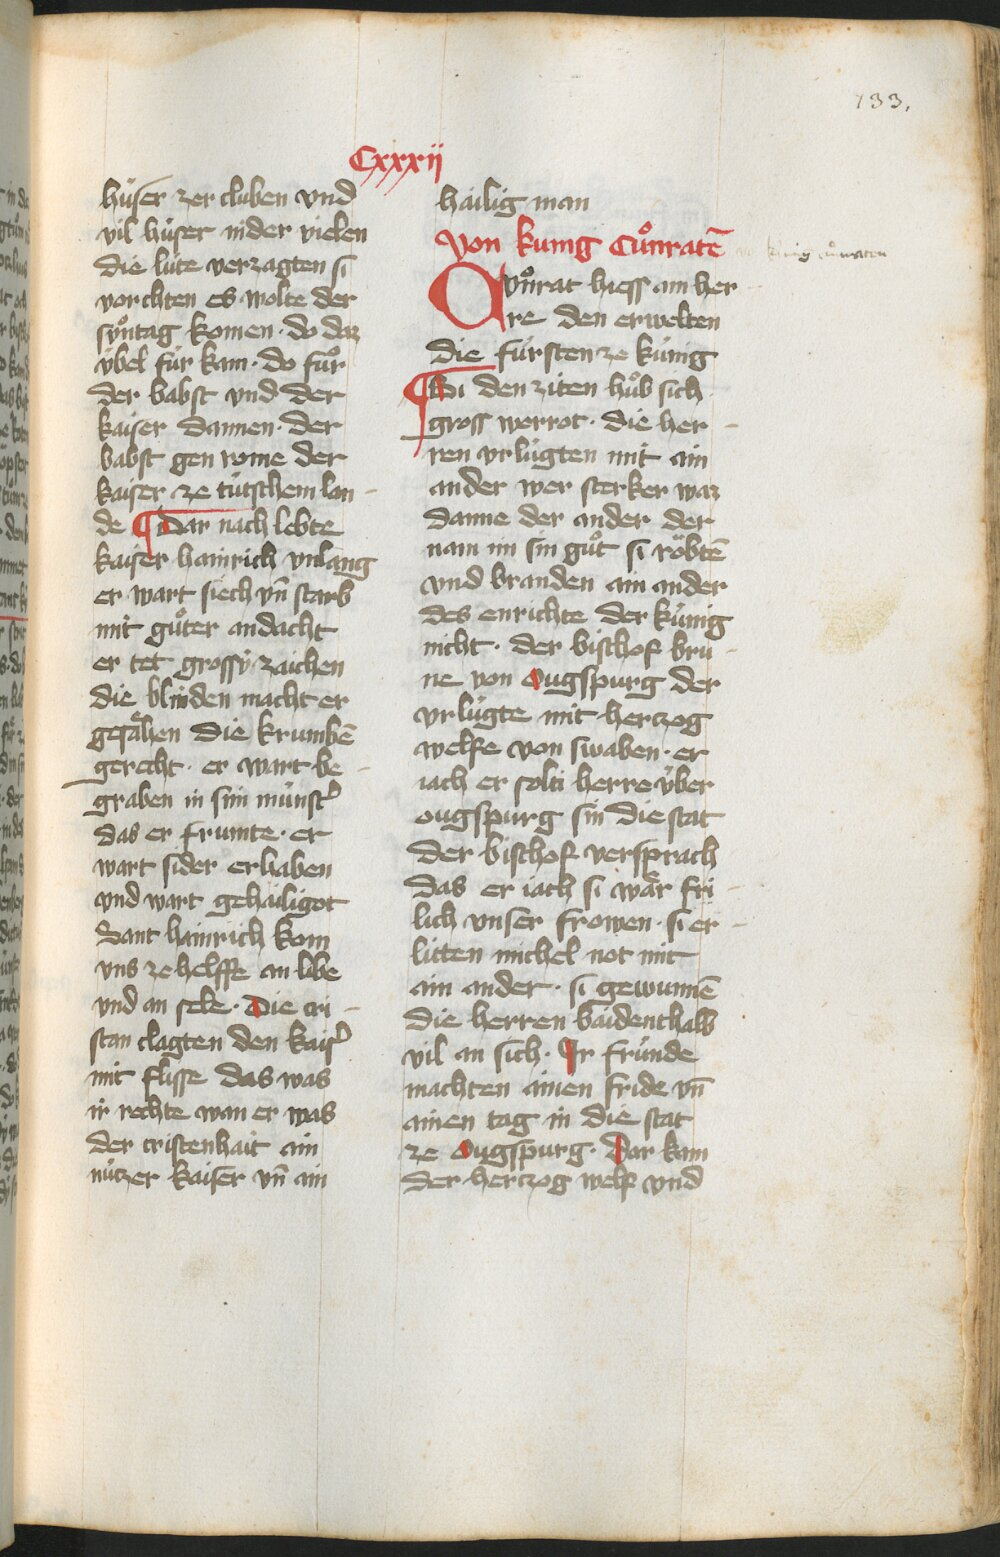 133.
Cxxxii
hüser zer cluben vnd
vil hüser nider vielen
die lüte verzagten si
vorchten es wolte der
syͦntag komen · do daz
übel für kam · do fuͦr
der babst vnd der
kaiser dannen · der
babst gen rome der
kaiser ze tütschem lan
de ¶ Dar nach lebte
kaiser hainrich vnlang
er wart siech vn̄ starb
mit guͦter andacht
er tet grossÿ zaichen
die blinden macht er
gesaͤhen die krumbē
gerecht · er wart be
graben in sim münstˀ
das er frumte · er
wart sider erhaben
vnd wart gehailigot
Sant hainrich kom
vns ze helffe an libe
vnd an sele · Die cri
stan clagten den kaisˀ
mit flisse das was
ir rechte wan er was
der cristenhait ain
nützer kaiser vn̄ ain
hailig man
Von kunig Cuͦnratē
von kunig cuͦnraten
Cvͦnrat hiess ain her
re den erwelten
die fürsten ze künig
¶ Bi den ziten huͦb sich
gross werrot · die her
ren vrlügten mit ain
ander wer sterker waz
danne der ander der
nam im sin guͦt si roͤbtē
vnd branden ain ander
des enrichte der künig
nicht · der bischof bru
ne von Ougspurg der
vrlügte mit herczog
welfe von swaben · er
iach er solti herre über
ougspurg sin die stat
der bischof versprach
das er iach si waͤr fri
lich vnser frowen · si er
litten michel not mit
ain ander · si gewunnē
die herren baidenthalb
vil an sich · Ir fründe
machten ainen fride vn̄
ainen tag in die stat
ze Ougspurg · Dar kam
der herczog welf vnd